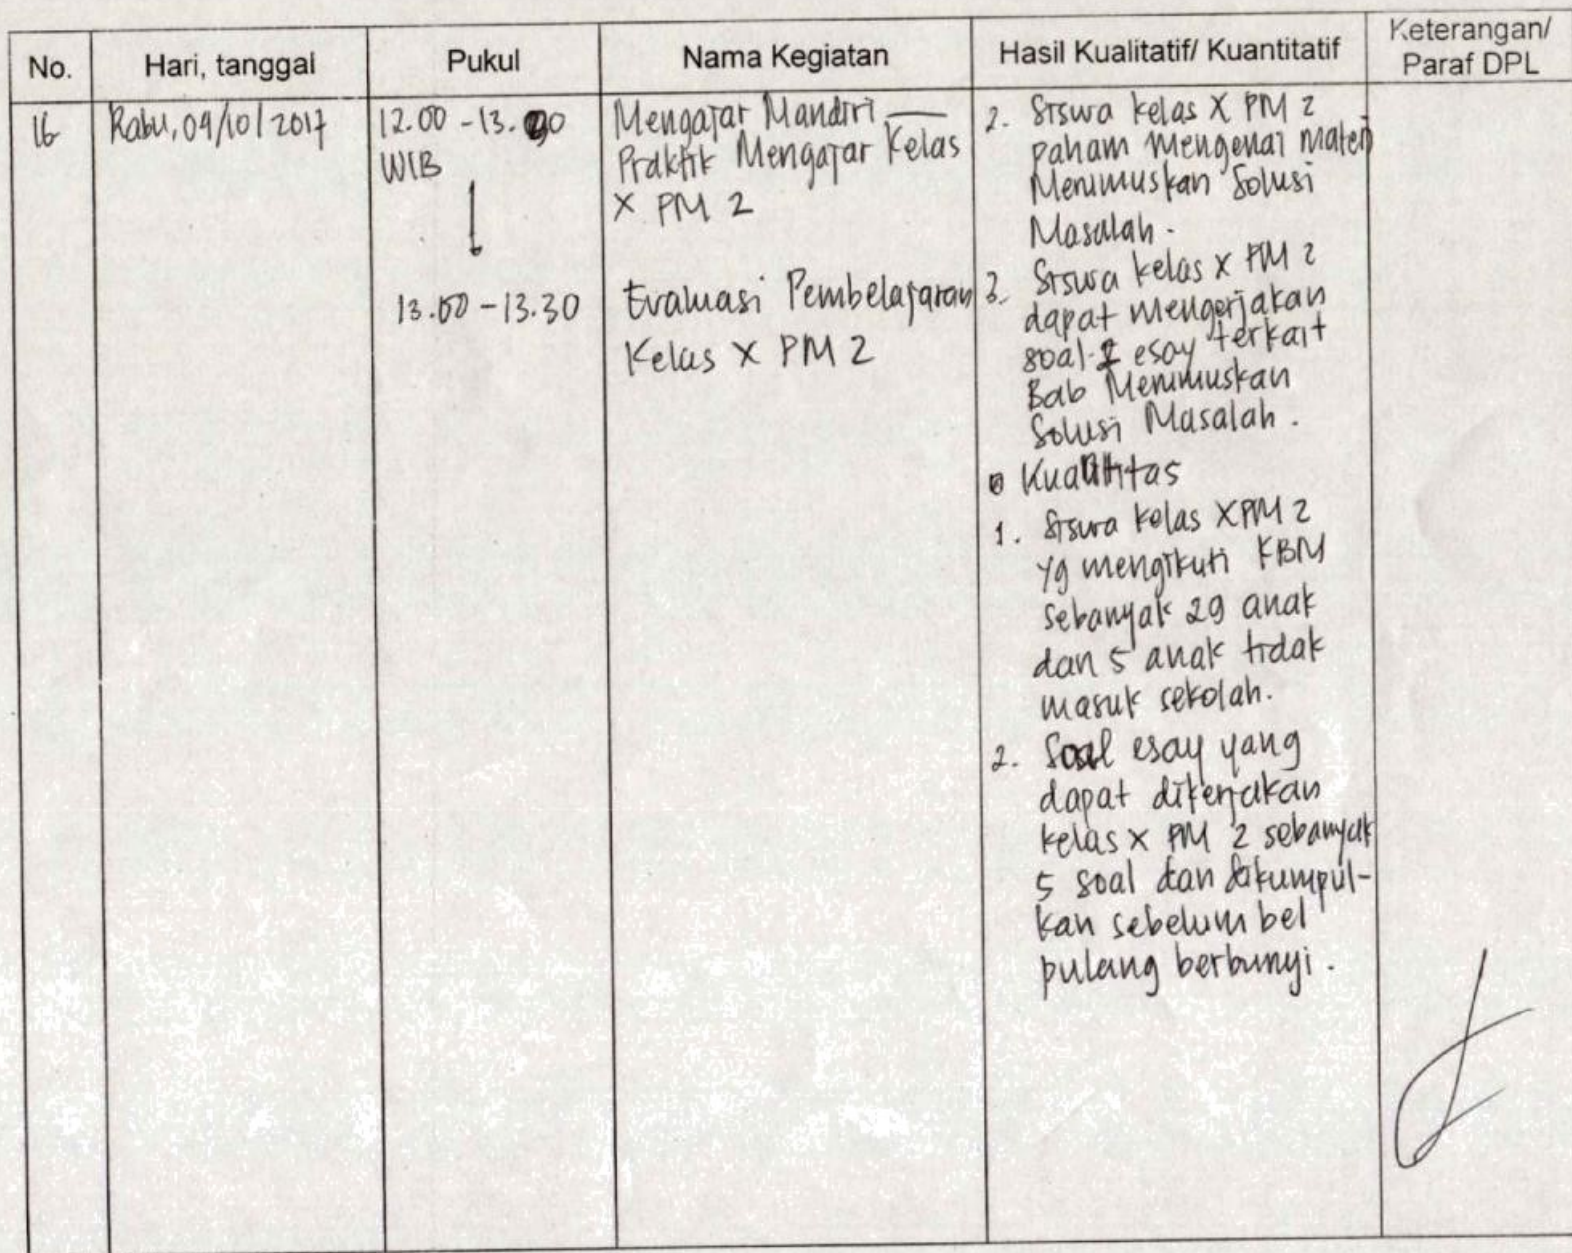 No.
Hari, tanggal
Pukul
Nama Kegiatan
Hasil Kualitatif/ Kuantitatif
Keterangan/
Paraf DPL
16
Rabu, 04/10/2017
12.00 - 13.00
WIB
13.00 - 13.30
Mengajar Mandiri
Praktik Mengajar Kelas
X PM 2
Evaluasi Pembelajaran
Kelas X PM 2
2. Siswa kelas X PM 2
paham mengenai materi
Merumuskan Solusi
Masalah.
3. Siswa kelas X PM 2
dapat mengerjakan
soal-2 esay terkait
Bab Merumuskan
Solusi Masalah.
Kuantitas
1. Siswa kelas X PM 2
yg mengikuti KBM
sebanyak 29 anak
dan 5 anak tidak
masuk sekolah.
2. Soal esay yang
dapat dikerjakan
kelas X PM 2 sebanyak
5 soal dan dikumpul-
kan sebelum bel
pulang berbunyi.